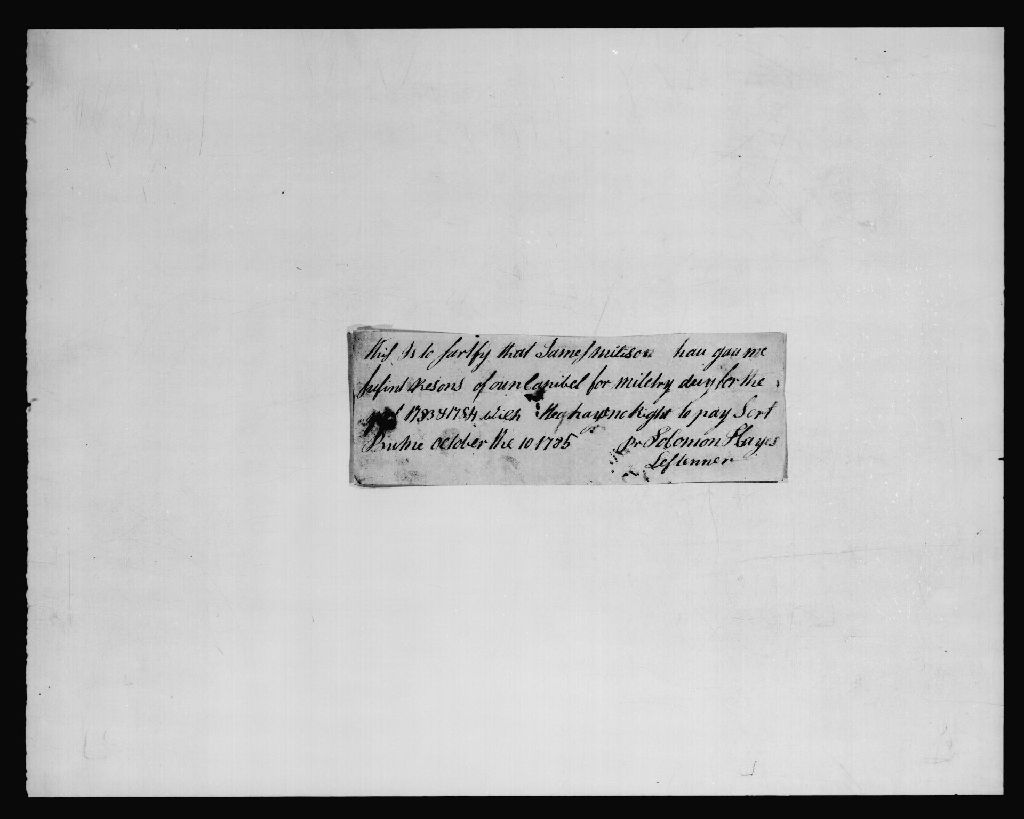 this is to sartfy that James mitson hau gau me
sufint Resons of oun Capibel for miletry duy for the
1783 & 1784 wich They have no Right to pay Sert
October the 10 1785 pr Solomon Hayes
Leftenner